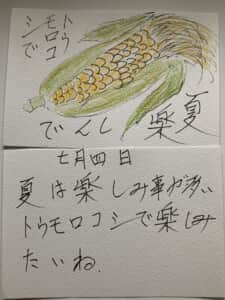 トウ
モロコ
シで
夏楽しんで
七月四日
夏は楽しみ事が多い
トウモロコシで楽しみ
たいね.